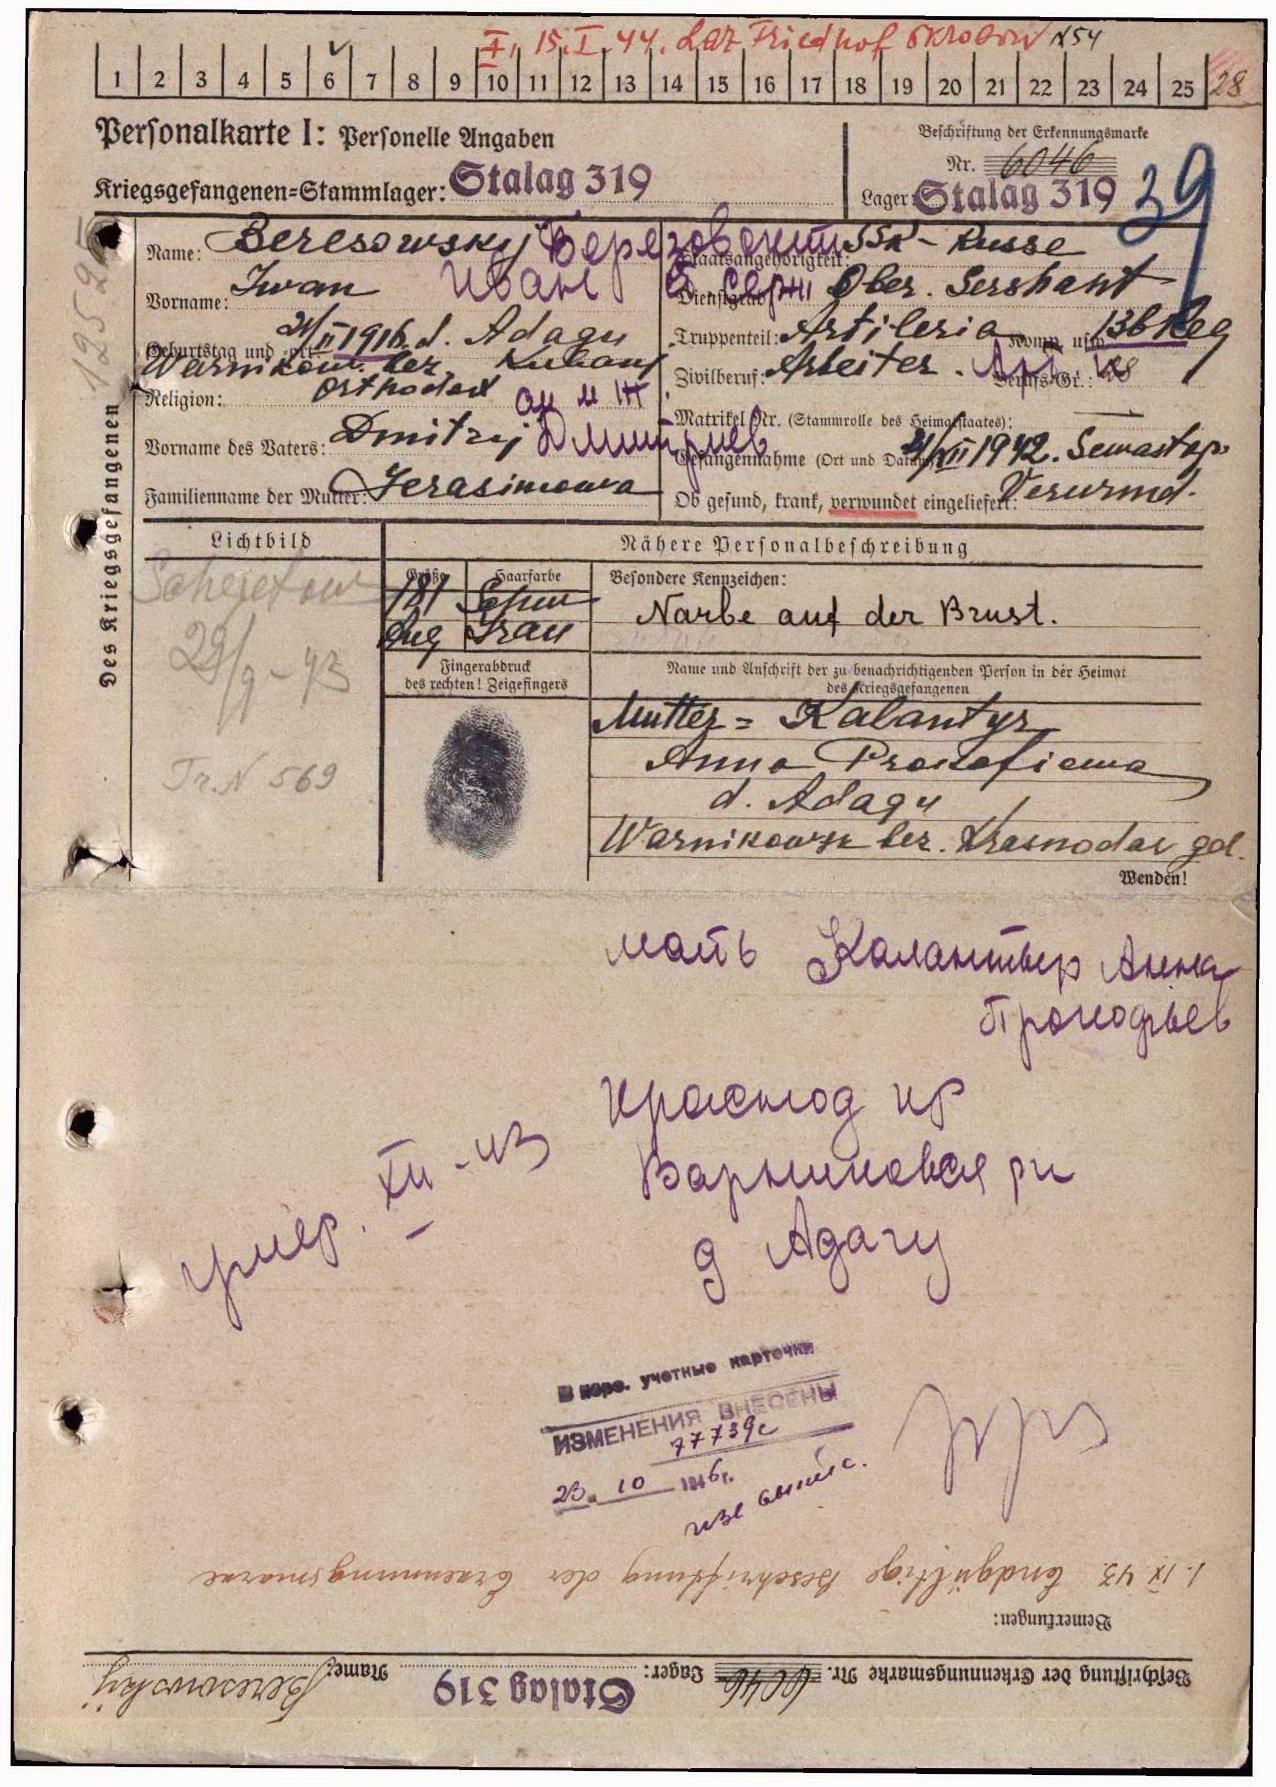 I. 15.I.44. Laz Friedhof Okrolow N54
1 2 3 4 5 6 7 8 9 10 11 12 13 14 15 16 17 18 19 20 21 22 23 24 25 28
Personalkarte I: Personelle Angaben
Beschriftung der Erkennungsmarke
Nr. 6046
Kriegsgefangenen-Stammlager: Stalag 319
Lager: Stalag 319
39
Des Kriegsgefangenen
Name: Beresowskij Березовский
Staatsangehörigkeit: SSR - Russe
Vorname: Iwan Иван
Dienstgrad: Ober. Sershant
Geburtstag und -ort: 21/II 1916 d. Adagu
Warnikow. bez. Kubanj
Truppenteil: Artileria Komp. usw.: 136 Reg
Zivilberuf: Arbeiter. Berufs-Gr.:
Religion: Orthodox
Matrikel Nr. (Stammrolle des Heimatstaates): —
Vorname des Vaters: Dmitrij Дмитриев
Gefangennahme (Ort und Datum): 1942. Sewastop.
Familienname der Mutter: Jerasimowa
Ob gesund, krank, verwundet eingeliefert: Verwund.
Lichtbild
Nähere Personalbeschreibung
Größe Haarfarbe
Besondere Kennzeichen:
181
Narbe auf der Brust.
Aug Grau
Fingerabdruck
des rechten! Zeigefingers
Name und Anschrift der zu benachrichtigenden Person in der Heimat
des Kriegsgefangenen
29/9-43
Tr.N 569
Mutter = Kalantyr
Anna Prokofiewa
d. Adagu
Warnikowsk bez. Krasnodar gd.
Wenden!
мать Калантыр Анна
Прокофьев
Краснод кр
Варниковск рн
д Адагу
умер. XII-43
В перс. учетные карточки
ИЗМЕНЕНИЯ ВНЕСЕНЫ
77739с
23. 10 1946г.
1. IX 43. Endgültige Beschriftung der Erkennungsmarke
Bemerkungen:
Beschriftung der Erkennungsmarke Nr. 6046 Lager: Stalag 319 Name: Beresowskij